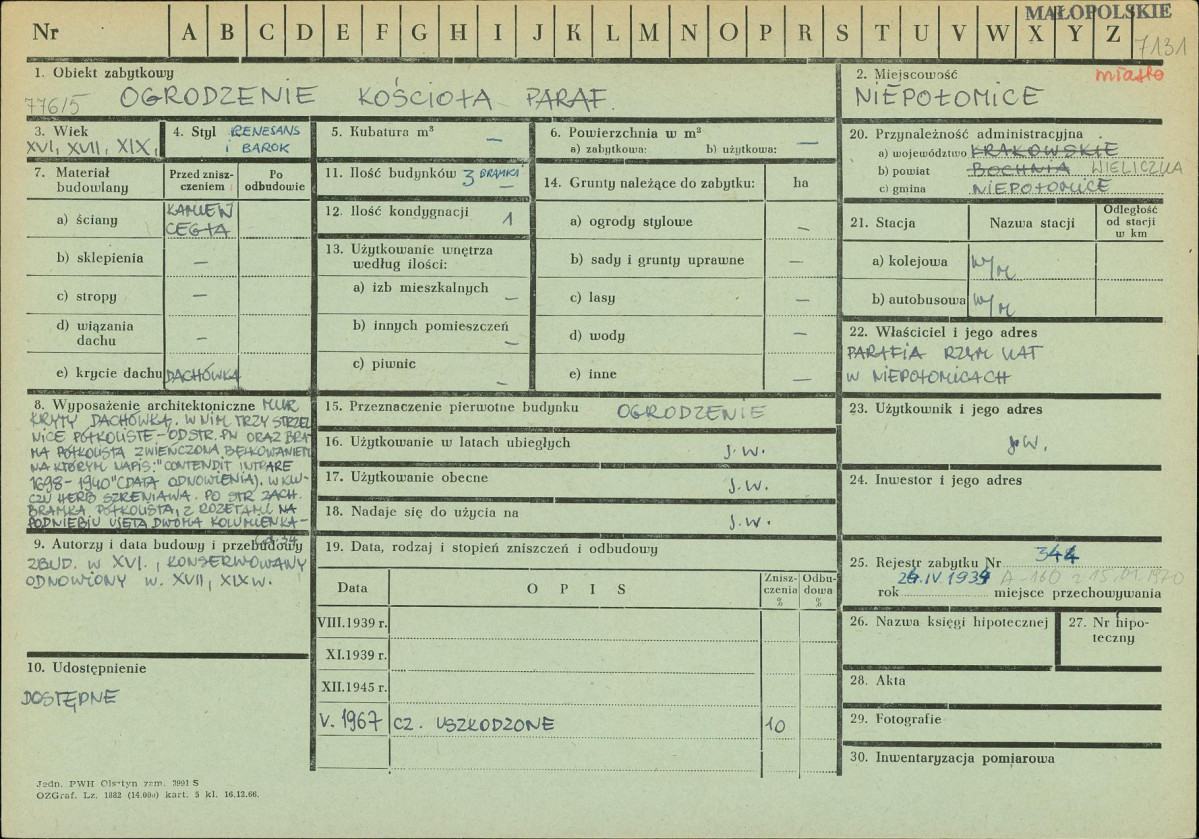 MAŁOPOLSKIE
Nr A B C D E F G H I J K L M N O P R S T U V W X Y Z
7131
1. Obiekt zabytkowy
776/5 OGRODZENIE KOŚCIOŁA PARAF.
2. Miejscowość miasto
NIEPOŁOMICE
3. Wiek
XVI, XVII, XIX,
4. Styl RENESANS
i BAROK
5. Kubatura m³
—
6. Powierzchnia w m²
a) zabytkowa: b) użytkowa: —
20. Przynależność administracyjna
a) województwo KRAKOWSKIE
b) powiat BOCHNIA WIELICZKA
c) gmina NIEPOŁOMICE
7. Materiał budowlany
Przed znisz-
czeniem
Po
odbudowie
a) ściany KAMIEŃ
CEGŁA
b) sklepienia —
c) stropy —
d) wiązania
dachu —
e) krycie dachu DACHÓWKA
11. Ilość budynków 3 BRAMKA
—
12. Ilość kondygnacji 1
13. Użytkowanie wnętrza
według ilości:
a) izb mieszkalnych —
b) innych pomieszczeń —
c) piwnic —
14. Grunty należące do zabytku: ha
a) ogrody stylowe —
b) sady i grunty uprawne —
c) lasy —
d) wody —
e) inne —
21. Stacja Nazwa stacji
Odległość
od stacji
w km
a) kolejowa w/m
b) autobusowa w/m
22. Właściciel i jego adres
PARAFIA RZYM KAT
W NIEPOŁOMICACH
8. Wyposażenie architektoniczne MUR
KRYTY DACHÓWKĄ. W NIM TRZY STRZEL
NICE PÓŁKOLISTE – OD STR. PN ORAZ BRA-
MA PÓŁKOLISTA ZWIEŃCZONA BELKOWANIEM
NA KTÓRYM NAPIS: "CONTENDIT INTRARE
1698 - 1940" (DATA ODNOWIENIA). W KLU-
CZU HERB SZRENIAWA. PO STR ZACH.
BRAMKA PÓŁKOLISTA, Z ROZETAMI NA
PODNIEBIU UJĘTA DWOMA KOLUMIENKA-
15. Przeznaczenie pierwotne budynku OGRODZENIE
16. Użytkowanie w latach ubiegłych j.w.
17. Użytkowanie obecne j.w.
18. Nadaje się do użycia na j.w.
23. Użytkownik i jego adres
j.w.
24. Inwestor i jego adres
9. Autorzy i data budowy i przebudowy
ZBUD. W XVI., KONSERWOWANY
ODNOWIONY W. XVII, XIX w.
10. Udostępnienie
DOSTĘPNE
19. Data, rodzaj i stopień zniszczeń i odbudowy
Data O P I S
Znisz-
czenia
%
Odbu-
dowa
%
VIII.1939 r.
XI.1939 r.
XII.1945 r.
V. 1967 CZ. USZKODZONE 10
25. Rejestr zabytku Nr 344
24.IV 1934 A-160 z 15.01.1970
rok miejsce przechowywania
26. Nazwa księgi hipotecznej
27. Nr hipo-
teczny
28. Akta
29. Fotografie
30. Inwentaryzacja pomiarowa
Jedn. PWH Olsztyn zam. 3991 S
OZGraf. Lz. 1882 (14.000) kart. 5 kl. 16.12.66.